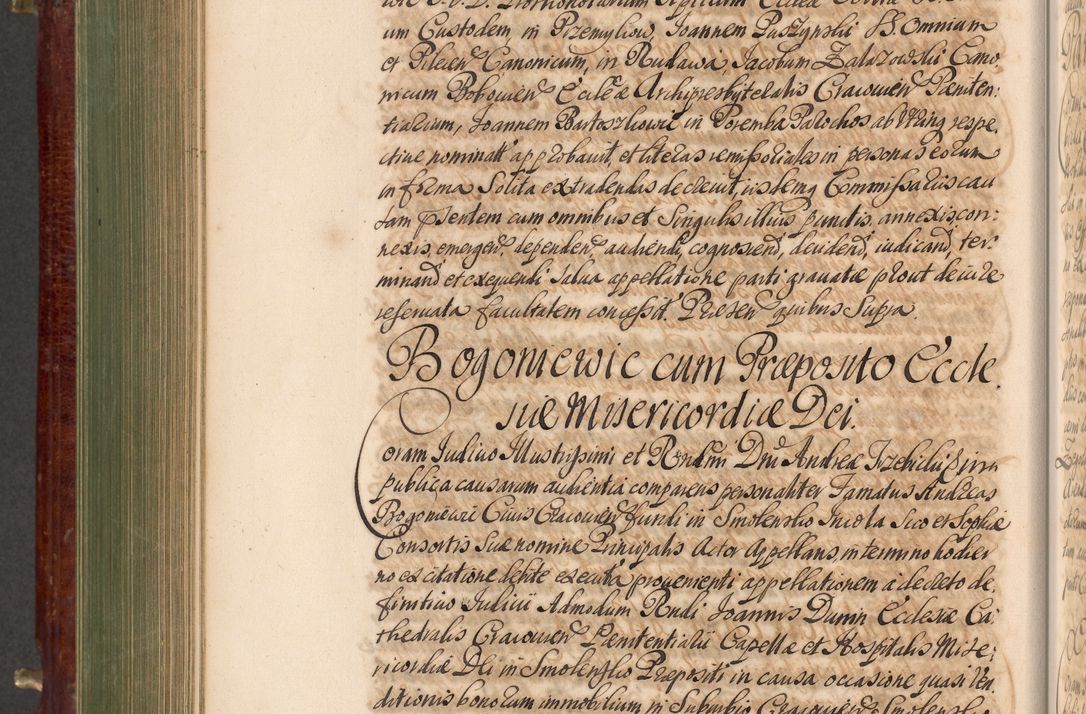 um Custodem, in Przemykow, Joannem Puszynski SS. Omnium
et Pilcien Canonicum, in Rudawa, Jacobum Zalazowski Cano,
nicum Bobowien Eccleæ Archipresbyteralis Cracovien Pæniten:
tiarium, Joannem Bartoszkowic in Poremba Parochos ab utrinq respe,
ctive nominatt approbavit, et literas remissoriales in personas eorum
in forma Solita extradendas decrevit, iisdemq Commissariis cau
sam psentem cum omnibus et Singulis illius punctis, annexis, con:
nexis, emergen, dependen, audiendi, cognoscend, decidend, iudicand, ter,
minand et exequendi Salva appellatione parti gravatæ prout de iure
reservata facultatem concessit. Præsen quibus Supra.
Bogoniewic cum Præposito Eccle,
siæ Misericordiæ Dei.
Coram Judicio Illustrissimi et Rndm Dni Andreæ Trzebicki in
publica causarum audientia comparens personaliter Famatus Andreas
Bogoniewic Civis Cracovien Fundi in Smolensko Incola Suo et Sophiæ
Consortis Suæ nomine Principalis Actor Appellans, in termino hodier
no ex citatione debite executa provenienti appellationem a decreto de,
finitivo Judicii Admodum Rndi Joannis Dunin Ecclesiæ Ca:
thedralis Cracovien Pænitentiarii Capellæ et Hospitalis Mise,
ricordiæ Dei in Smolensko Præpositi in causa occasione quasi Ven,
ditionis bonorum immobilium in Suburbio Cracovien Smolensko